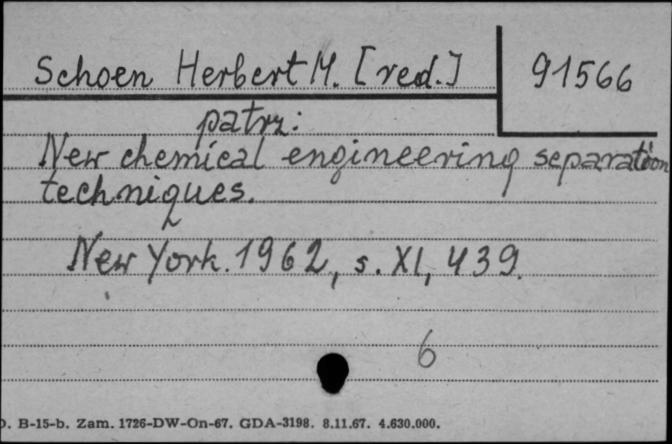 Schoen Herbert M. [red.]
91566
patrz:
New chemical engineering separation
techniques.
New York. 1962, s. XI, 439.
6
. B-15-b. Zam. 1726-DW-On-67. GDA-3198. 8.11.67. 4.630.000.